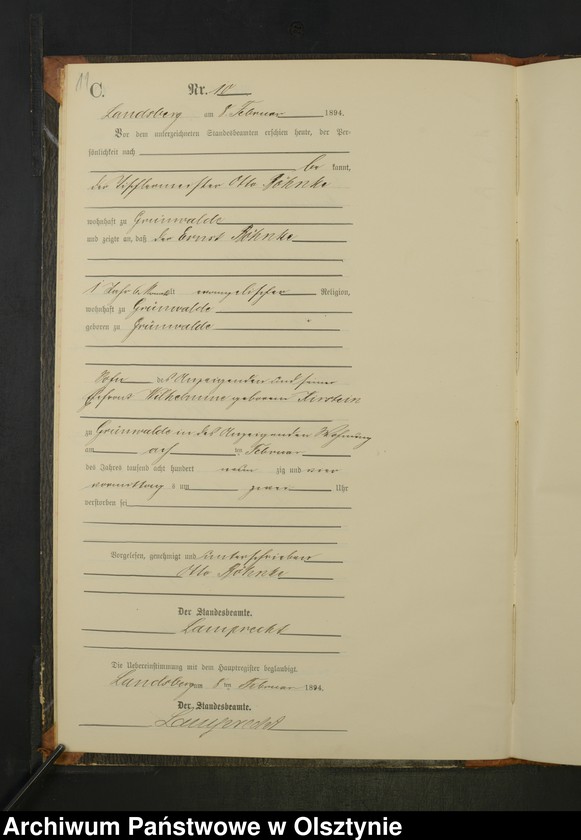 11
C.
Nr. 10
Landsberg am 8 Februar 1894.
Vor dem unterzeichneten Standesbeamten erschien heute, der Per-
sönlichkeit nach
be kannt,
der Tischlermeister Otto Böhnke
wohnhaft zu Grünwalde
und zeigte an, daß der Ernst Böhnke
1 Jahr 6 alt evangelischer Religion,
wohnhaft zu Grünwalde
geboren zu Grünwalde
Sohn des Anzeigenden und seiner
Ehefrau Wilhelmine geborenen
zu Grünwalde in des Anzeigenden Wohnung
am ten Februar
des Jahres tausend acht hundert neun zig und vier
vormittag s um zwei Uhr
verstorben sei
Vorgelesen, genehmigt und unterschrieben
Otto Böhnke
Der Standesbeamte.
Lamprecht
Die Uebereinstimmung mit dem Hauptregister beglaubigt.
Landsberg am 8 ten Februar 1894.
Der Standesbeamte.
Lamprecht
Archiwum Państwowe w Olsztynie